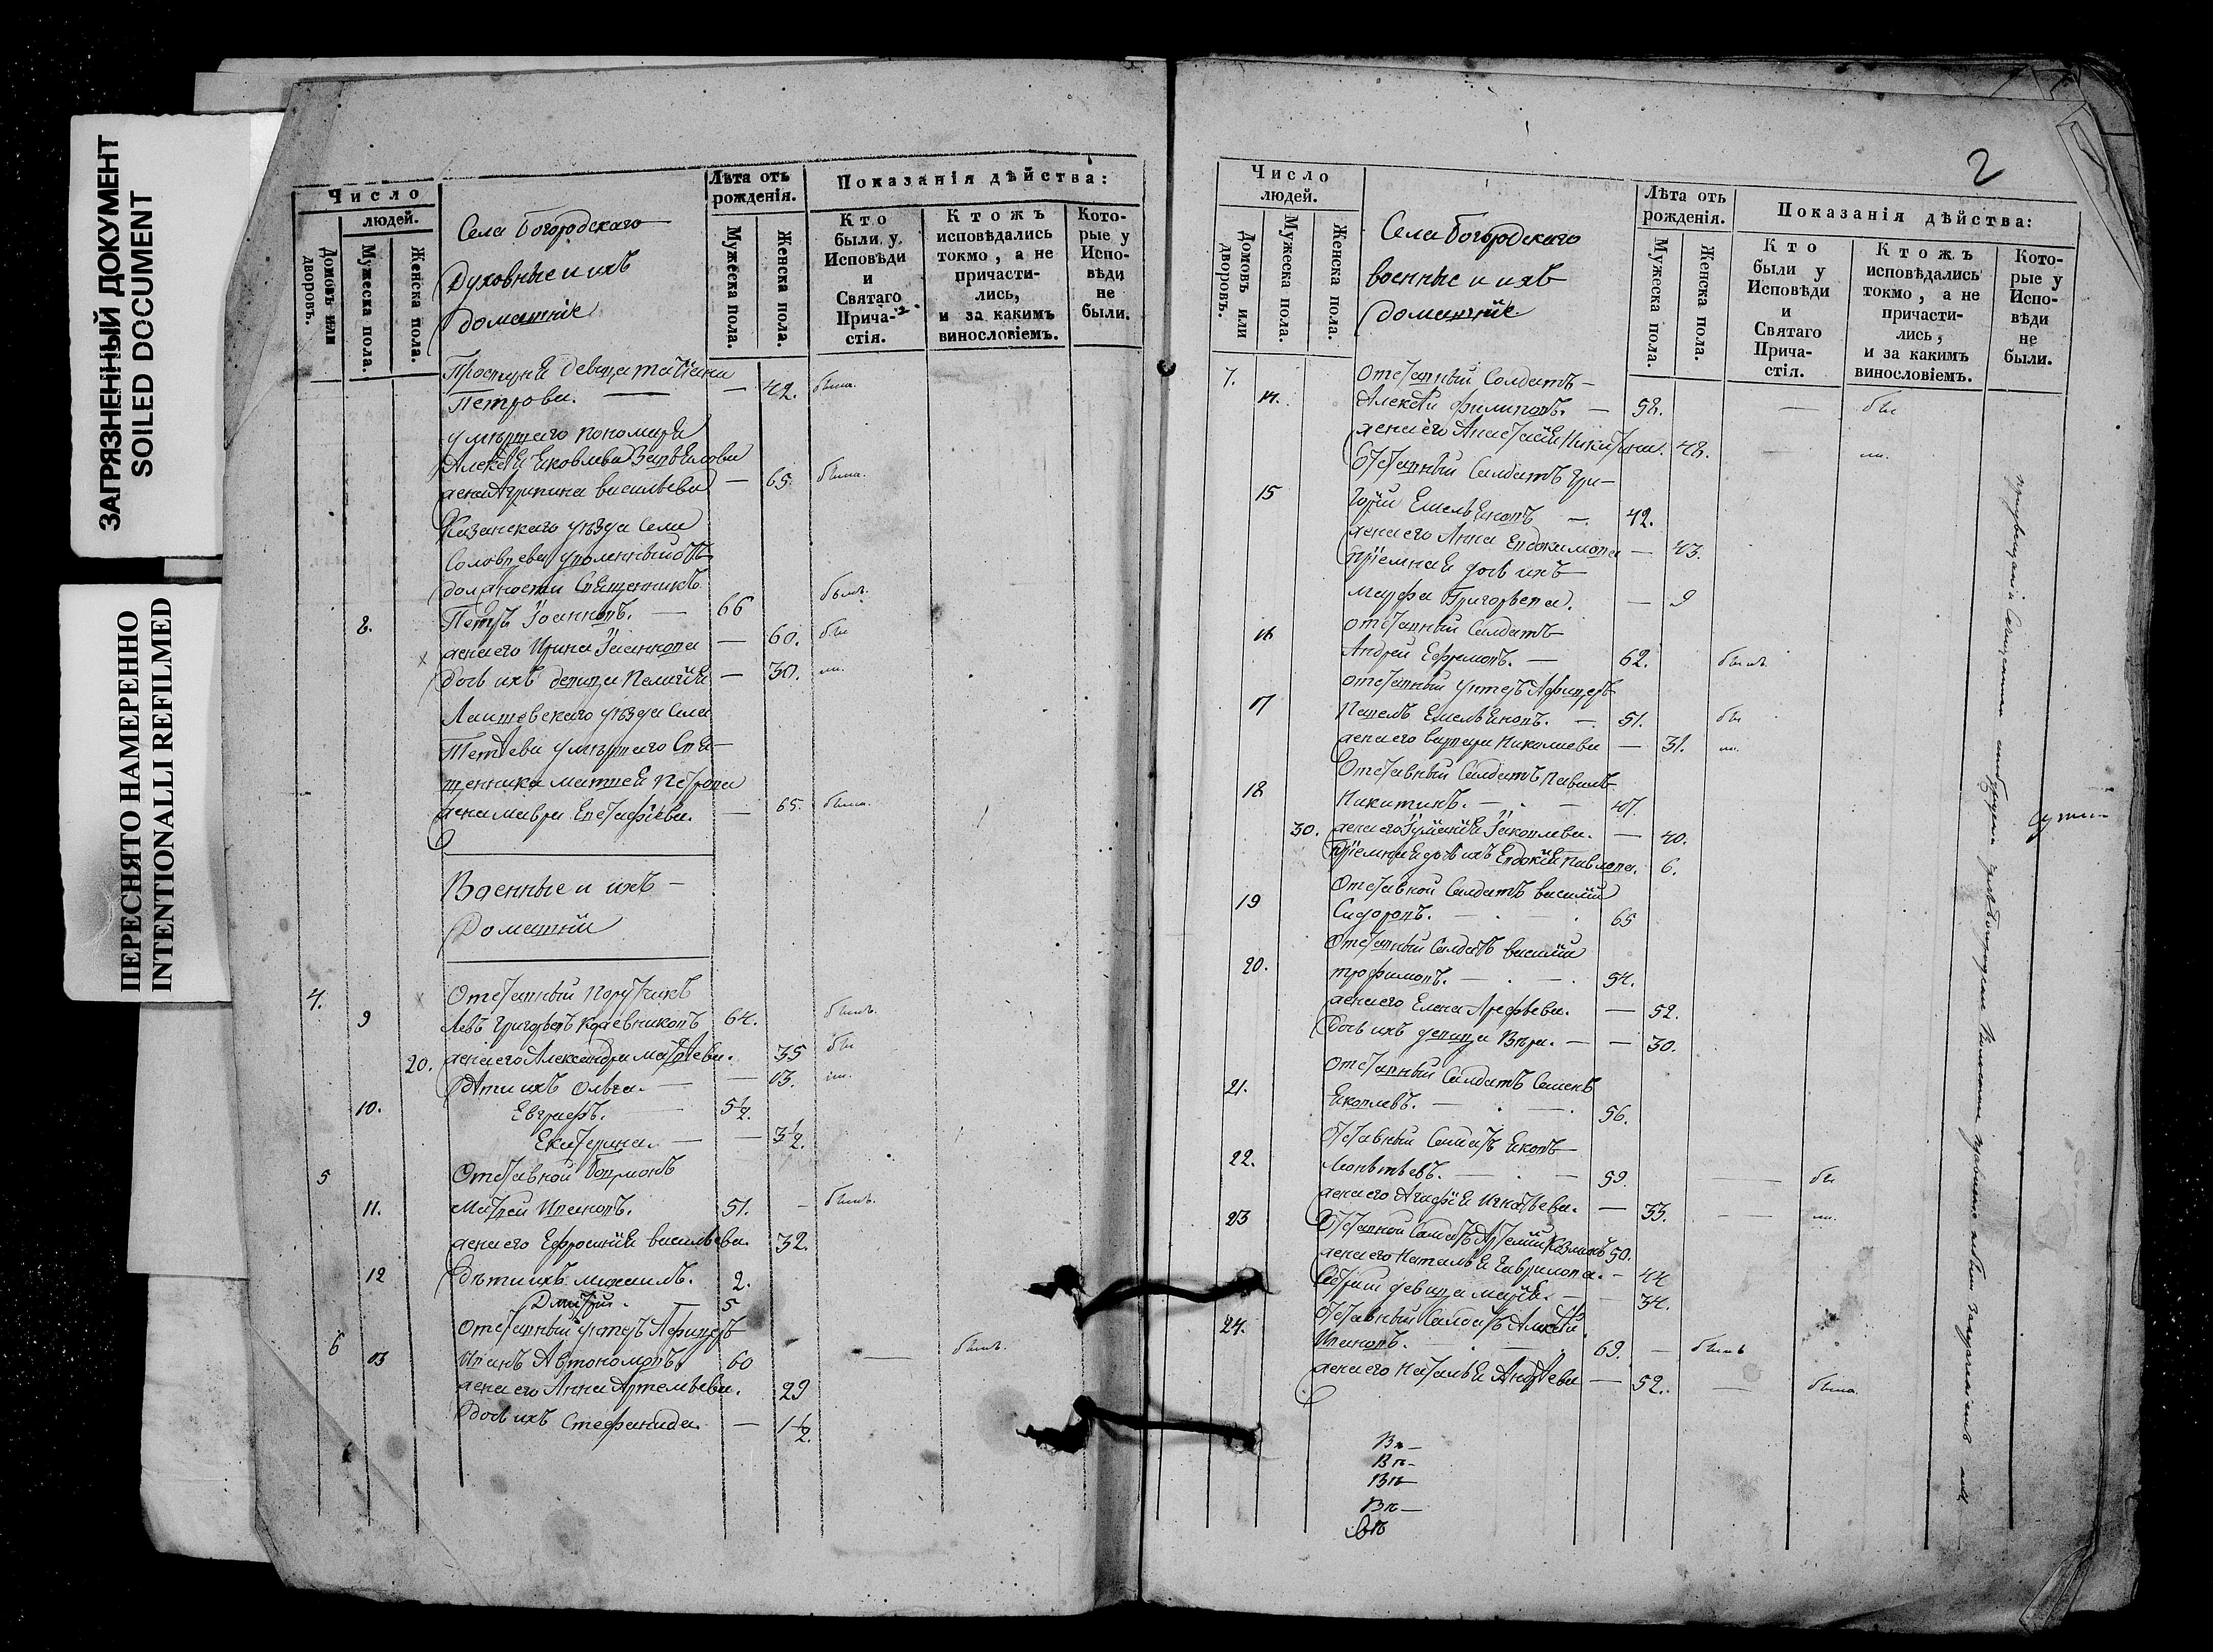 ЗАГРЯЗНЕННЫЙ ДОКУМЕНТ
SOILED DOCUMENT
ПЕРЕСНЯТО НАМЕРЕННО
INTENTIONALLI REFILMED
Число
людей.
Домовъ или дворовъ.
Мужеска пола.
Женска пола.
Села Богородскаго
Духовные и ихъ
домашніе
Лѣта отъ рожденія.
Мужеска пола.
Женска пола.
Показанія дѣйства:
Кто были у Исповѣди и Святаго Прича-стія.
Ктожъ исповѣдались токмо, а не причасти-лись, и за какимъ винословіемъ.
Кото-рые у Испо-вѣди не были.
девица татіана
Петрова. — 42. была.
умершаго пономаря
Алексея Яковлева
жена Агрипина васильева — 65. была.
Казанскаго уѣзда Села
должности Священникъ
8. Петръ Іоанновъ. — 66 былъ.
жена его Ирина Іоаннова — 60. бы
дочь ихъ девица Пелагія — 30. ла.
Лаишевскаго уѣзда Села
Тетѣева умершаго Свя-
щенника матвея Петрова
жена мавра Евстафіева. — 65. была.
Военные и ихъ —
Домашніи
4. Отставный Порутчикъ
9 Левъ Григорьевъ Кожевниковъ 64. былъ.
20. жена его Александра матвѣева. 35 бы
дѣти ихъ Ольга. — 13. ла.
10. Евграфъ. — 5½.
Екатерина. — 3½.
5 Отставной
11. Матвей Ивановъ. 51. — былъ.
жена его Ефросинія васильева. 32.
12 дѣти ихъ михаилъ. 2.
Дмитрій. 5
6 Отставный унтеръ Афицеръ
13 Иванъ Автономовъ. 60 — былъ.
жена его Анна Артемьева. 29
дочь ихъ Стефанида. — 1½.
2
Число
людей.
Домовъ или дворовъ.
Мужеска пола.
Женска пола.
Села Богородскаго
военные и ихъ
домашніе.
Лѣта отъ рожденія.
Мужеска пола.
Женска пола.
Показанія дѣйства:
Кто были у Исповѣди и Святаго Прича-стія.
Ктожъ исповѣдались токмо, а не причасти-лись, и за какимъ винословіемъ.
Кото-рые у Испо-вѣди не были.
7. Отставный Солдатъ —
14. Алексѣй Филиповъ. — 58. — бы
жена его Анастасія Никитина. 48. — ли.
Отставный Салдатъ Гри-
15 горій Емельяновъ — 42.
жена его Анна Евдокимова — 43.
пріемная дочь ихъ
марфа Григорьева. — 9
отставный Салдатъ
16 Андрей Ефремовъ. — 62. былъ
отставный унтеръ Афицеръ
17 Павелъ Емельяновъ. — 51. бы
жена его варвара Николаева — 31. ли.
Отставный Салдатъ Павилъ
18 Никитинъ. — 47.
30. жена его Іуліанія Іаковлева. — 40.
пріемная дочь ихъ Евдокія Павлова. 6.
Отставной Салдатъ василій
19 Сидоровъ. — 65
Отставный Салдатъ василій
20. трофимовъ. — 54.
жена его Елена Арефьева. — 52.
дочь ихъ девица Вѣра. — 30.
Отставный Салдатъ Семенъ
21. Яковлевъ. — 56.
Отставный Салдатъ Яковъ
22. — 59. — бы
жена его Агафія Игнатьева. — 33. — ли.
23 Отставной Салдатъ Артемій Козминъ 50.
жена его Наталья Гаврилова. — 44
Сестра девица марія. — 34.
Отставный Салдатъ Алексѣй
24. Ивановъ. — 69. — былъ
жена его Наталья Андрѣева — 52. — была.
Въ —
Въ —
Въ —
Въ —
Въ